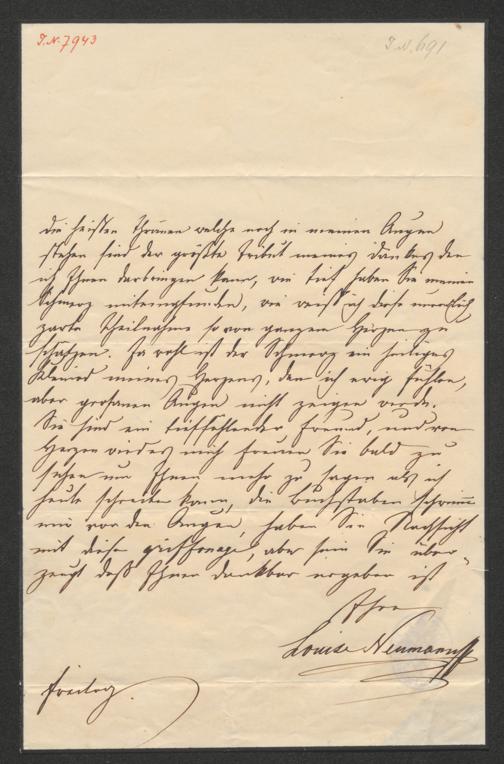 I.N. 7943
I.N. 691
die heißen Thränen welche noch in meinen Augen
stehen sind der größte Tribut meines Dankes den
ich Ihnen darbringen kann, wie tief haben Sie meinen
Schmerz mitempfunden, wie weiß ich diese
zarte Theilnahme so von ganzem Herzen zu
schätzen. Ja wohl ist der Schmerz ein heiliges
Kleinod meines Herzens, den ich ewig fühlen,
aber profanen Augen nicht zeigen werde.
Sie sind ein tieffühlender Freund, und von
Herzen wird es mich freuen Sie bald zu
sehen um Ihnen mehr zu sagen als ich
heute schreiben kann, die Buchstaben schwimmen
mir vor den Augen, haben Sie Nachsicht
mit diesen griffonage, aber sein Sie über-
zeugt daß Ihnen dankbar ergeben ist
Ihre
Louise Neumann
Freitag.